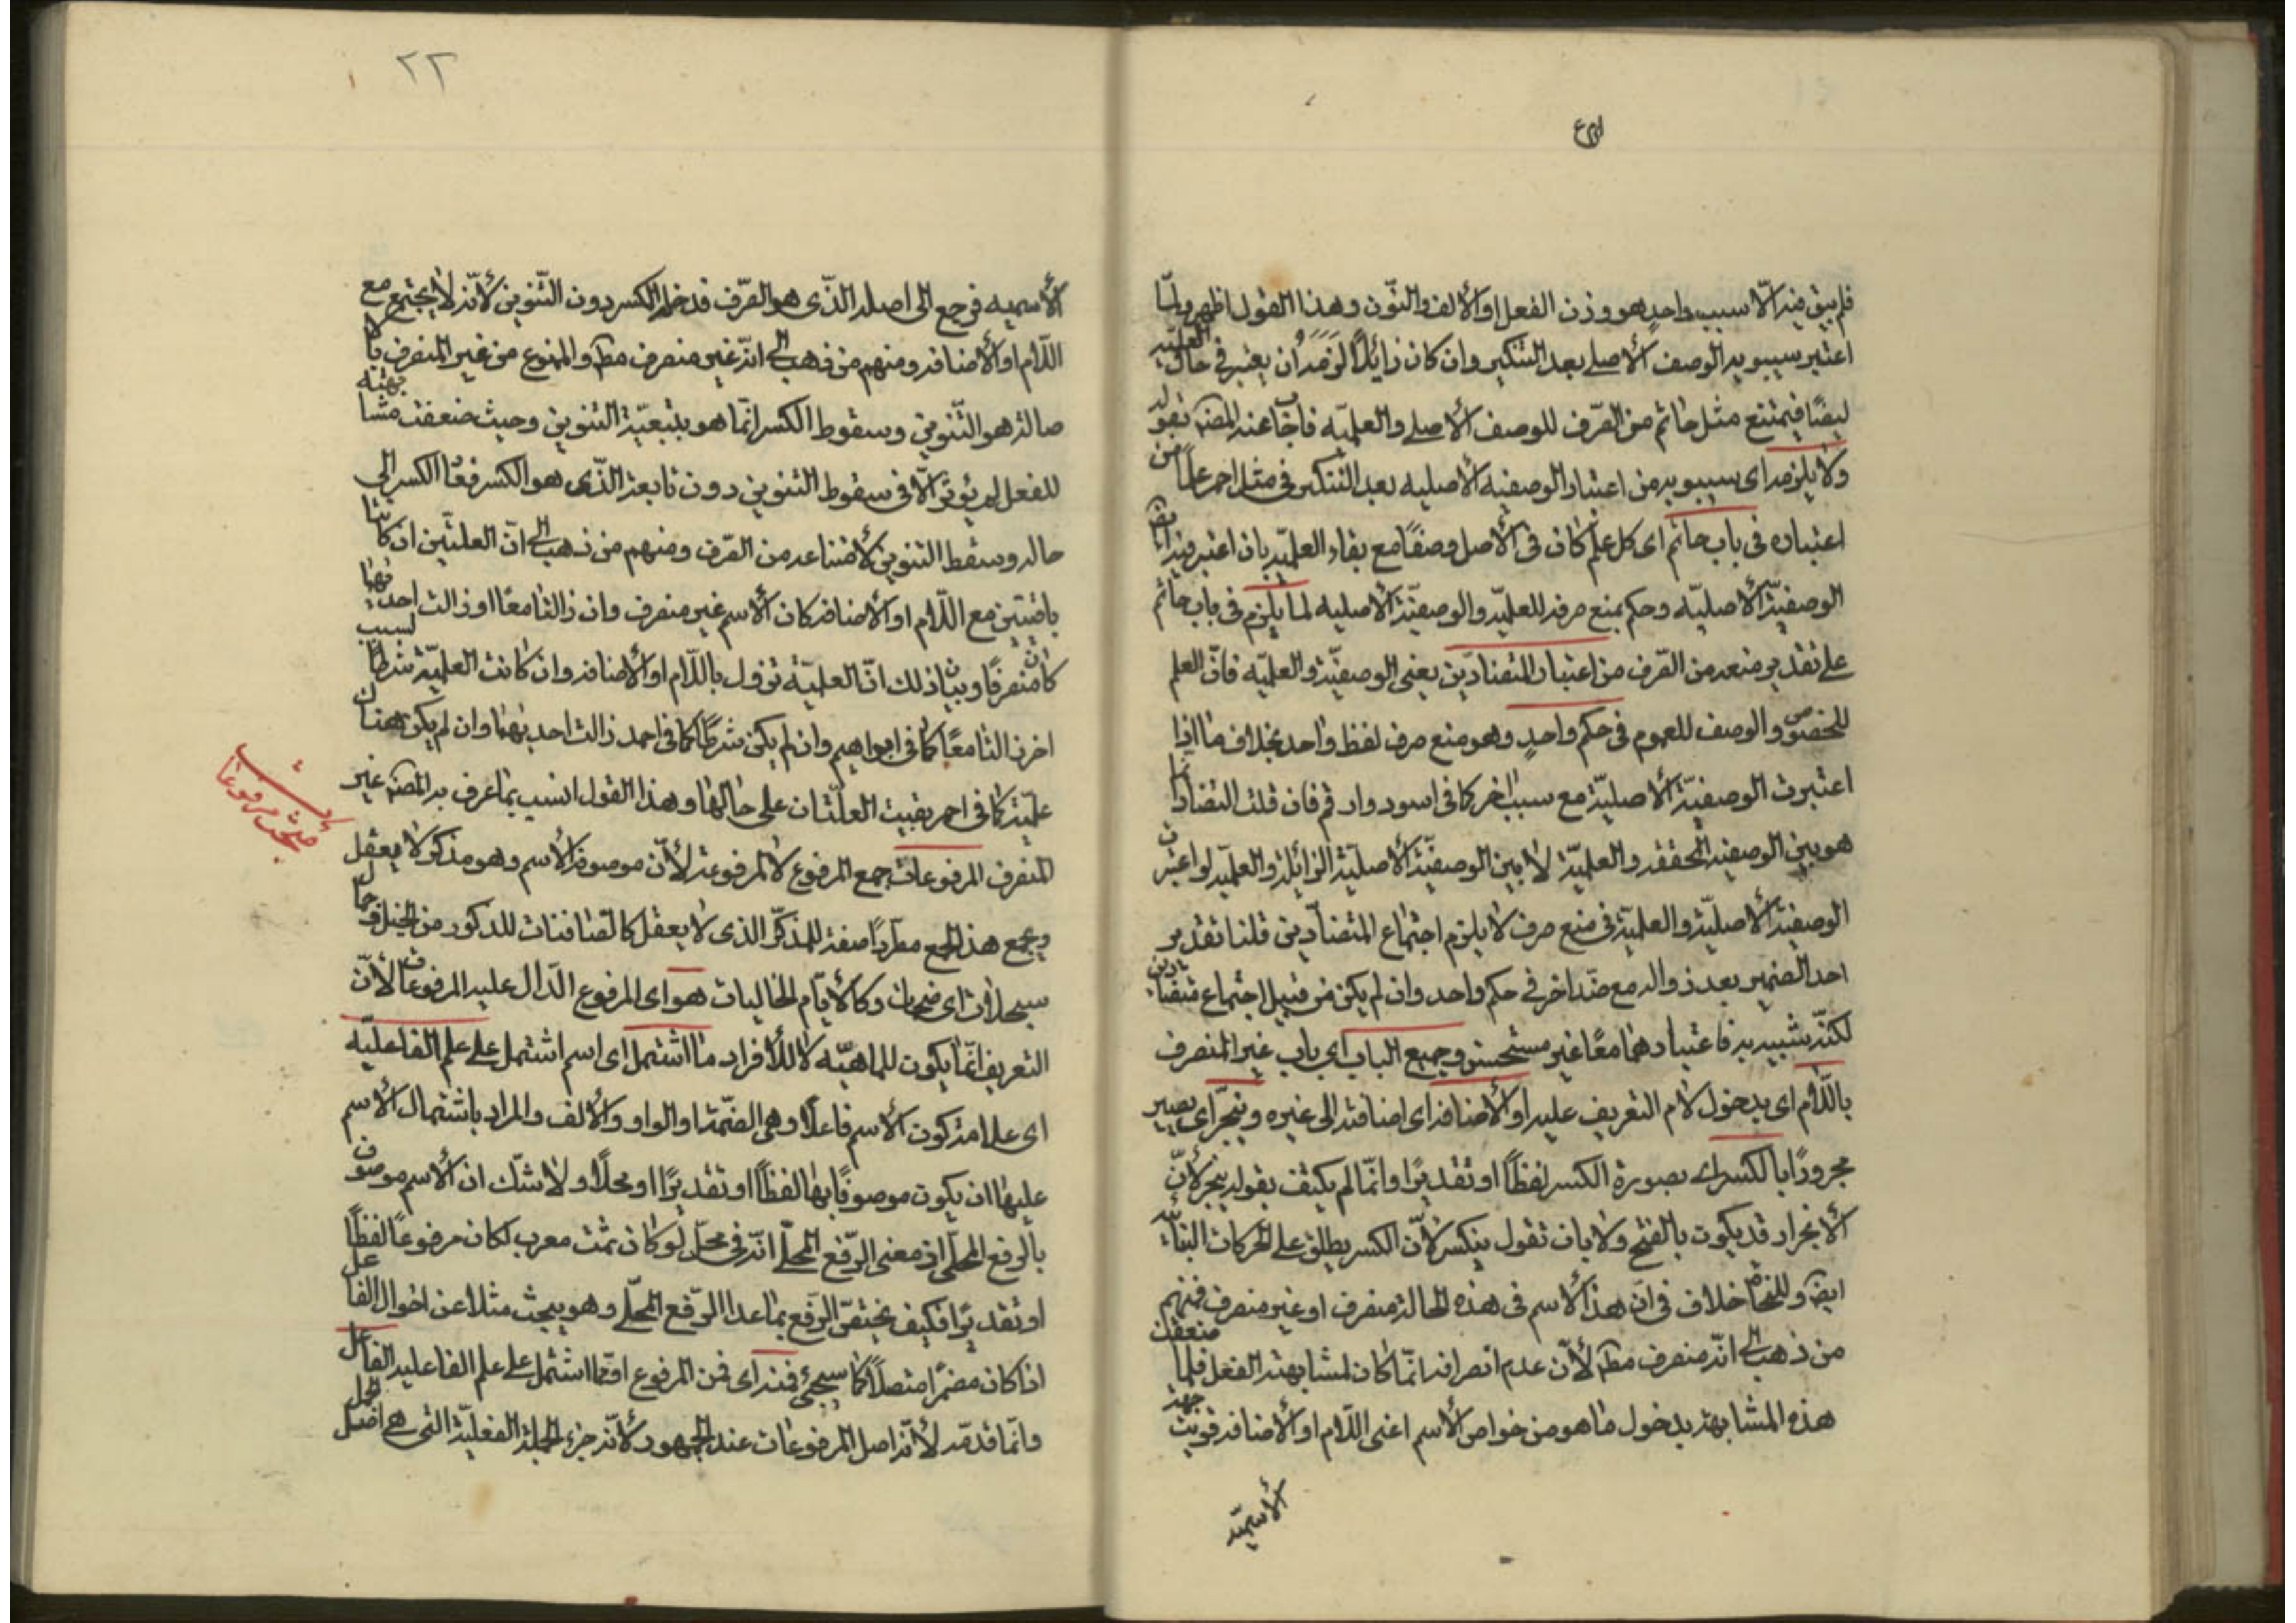 فلم يبق فيه الّا سبب واحد هو وزن الفعل او الألف والنّون وهذا القول اظهر ولمّا
اعتبر سيبويه الوصف الأصلى بعد التنكير وان كان زايلًا لزمه ان يعتبر فى حال العلميّة
ايضًا فيمتنع مثل حاتم من الصّرف للوصف الأصلى والعلميّه فاجاب عنه المصنه بقوله
ولا يلزمه اى سيبويه من اعتبار الوصفيه الأصليه بعد التنكير فى مثل احمر علما من
اعتباره فى باب حاتم اى كل علم كان فى الأصل وصفًا مع بقاء العلميّه بان اعتبر فيه ايضًا
الوصفيّة الأصليّه وحكم بمنع صرفه للعلميّه والوصفيّة الأصليه لما يلزم فى باب حاتم
على تقدير منعه من الصّرف من اعتبار المتضادّين يعنى الوصفيّة والعلميّه فانّ العلم
للخصوص والوصف للعموم فى حكم واحدٍ وهو منع صرف لفظ واحد بخلاف ما اذا
اعتبرت الوصفيّة الأصليّة مع سبب اخر كما فى اسود وارقم فان قلت التضاد انّما
هو بين الوصفيه المحققه والعلميّة لا بين الوصفيّة الأصليّة الزايلة والعلميّه لو اعتبرت
الوصفية الأصليّة والعلمية فى منع صرف لا يلزم اجتماع المتضادّين قلنا تقدير
احد الضدين بعد زواله مع ضد اخر فى حكم واحد وان لم يكن من قبيل اجتماع متضادين
لكنّه شبيه به فاعتبارهما معًا غير مستحسن وجميع الباب اى باب غير المنصرف
باللّام اى بدخول لام التعريف عليه او الأضافه اى اضافته الى غيره وينجرّ اى يصير
مجرورًا بالكسر اى بصورة الكسر لفظًا او تقديرًا وانّما لم يكتف بقوله ينجر لأنّ
الأنجرار قد يكون بالفتح ولا بان تقول ينكسر لأنّ الكسر يطلق على الحركات البنائية
ايضه وللنحاة خلاف فى ان هذا الأسم فى هذه الحالة منصرف او غير منصرف فمنهم
من ذهب الى انّه منصرف مطه لأن عدم انصرافه انّما كان لمشابهته الفعل فلما ضعفت
هذه المشابهة بدخول ما هو من خواص الأسم اعنى اللّام او الأضافه قويت جهة
الأسميّه
٢٢
الأسميه فرجع الى اصله الذّى هو الصّرف فدخله الكسر دون التّنوين لأنّه لا يجتمع مع
اللّام او الأضافه ومنهم من ذهب الى انّه غير منصرف مطه والممنوع من غير المنصرف بالأ
صالة هو التّنوين وسقوط الكسر انّما هو بتبعيّة التنوين وحيث ضعفت مشابهته
للفعل لم يؤثر الّا فى سقوط التنوين دون تابعه الذّى هو الكسر فعاد الكسر الى
حاله وسقط التنوين لأمتناعه من الصّرف ومنهم من ذهب الى انّ العلتّين ان كانتا
باقيتين مع اللّام او الأضافه كان الأسم غير منصرف وان زالتا معًا او زالت احديهما
كان منصرفًا وبيان ذلك انّ العلميّة تزول باللّام او الأضافه وان كانت العلميّة شرطا لسبب
اخر زالتا معًا كما فى ابراهيم وان لم يكن شرطًا كما فى احمد زالت احديهما وان لم يكن هناك
علميّة كما فى احمر بقيت العلّتان على حالها وهذا القول انسب بما عرف به المصنه غير
المنصرف المرفوعات جمع المرفوع لا المرفوعة لأنّ موصوفه الأسم وهو مذكر لا يعقل
ويجمع هذا الجمع مطّردًا صفة للمذكّر الذى لا يعقل كالصّافنات للذكور من الخيل وجمال
سبحلات اى ضخمات وكالأيّام الخاليات هو اى المرفوع الدّال عليه المرفوعات لأنّ
التعريف انّما يكون للماهيّه لا للأفراد ما اشتمل اى اسم اشتمل على علم الفاعليّه
اى علامة كون الأسم فاعلًا وهى الضمّة والواو والألف والمراد باشتمال الأسم
عليها ان يكون موصوفًا بها لفظًا او تقديرًا او محلًّا ولا شكّ ان الأسم موصوف
بالرفع المحلّى اذ معنى الرّفع المحلّى انّه فى محلّ لو كان ثمت معرب لكان مرفوعًا لفظًا
او تقديرًا فكيف يختصّ الرّفع بما عدا الرّفع المحلّى وهو يبحث مثلا عن احوال الفاعل
اذا كان مضمرًا متصلًا كما سيجئ فمنه اى فمن المرفوع او ممّا اشتمل على علم الفاعليه الفاعل
وانّما قدمّه لأنّه اصل المرفوعات عند الجمهور لأنّه جزء الجملة الفعليّة التى هى اصل الجمل
مبحث مرفوعات